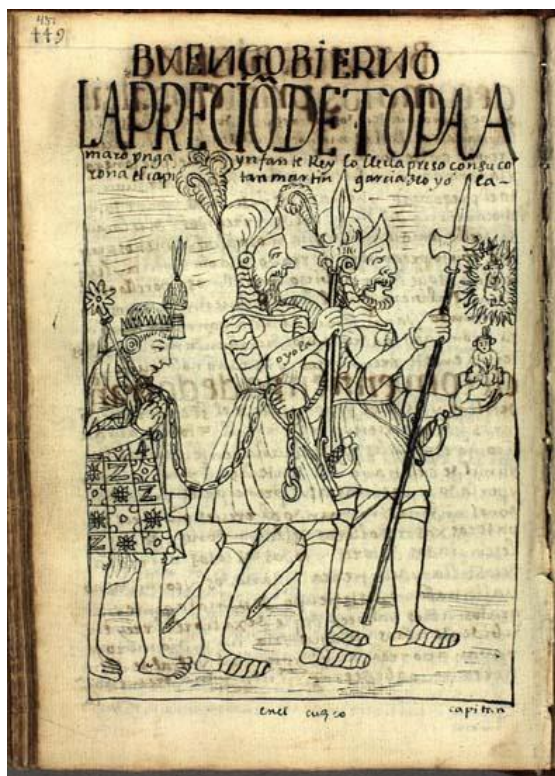 451
449
BVENGOBIERNO
LAPRECIÕDETOPAA
maro ynga ynfante Rey lo lleua preso con su co
rona el capi tan martin garcia de oyo la-
oyola
enel cuzco capitan